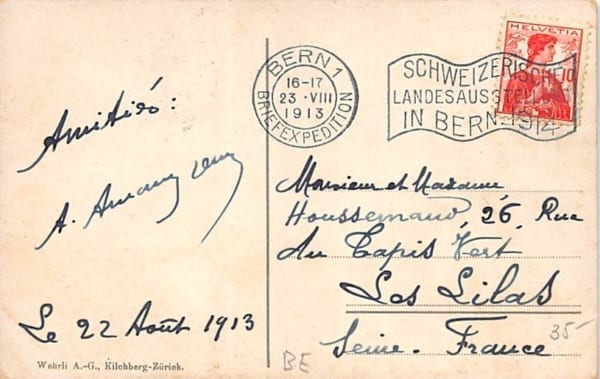 HELVETIA
BERN 1
16-17
23 · VIII
1913
BRIEFEXPEDITION
SCHWEIZERISCHE
LANDESAUSSTELLUNG
IN BERN 1914
Amitiés:
A.
Le 22 Août 1913
Monsieur et Madame
Houssemand, 26, Rue
du Tapis Vert
Les Lilas
Seine. France
35-
BE
Wehrli A.-G., Kilchberg-Zürich.